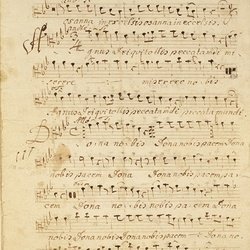 osanna in excelsis osanna in excelsis
Agnus Dei qui tollis peccata mundi mi
serere miserere nobis
Agnus Dei qui tollis peccata mundi peccata mundi
Dona nobis pacem Dona Dona nobis pa
nobis pacem Dona Dona nobis pacem, pa
cem Dona nobis pacem Dona
nobis Dona nobis pacem Dona no